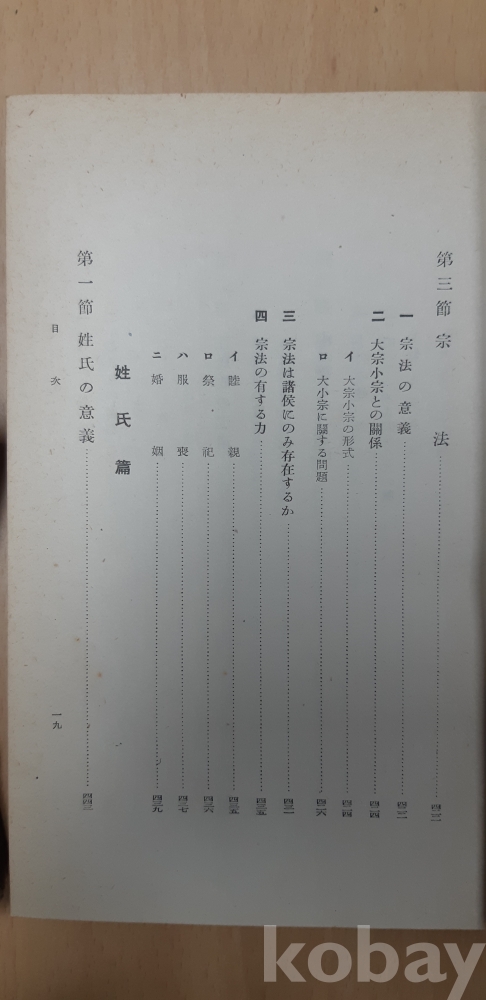 第三節 宗法……四二二
一 宗法の意義……四二二
二 大宗小宗との關係……四二四
イ 大宗小宗の形式……四二四
ロ 大小宗に關する問題……四二六
三 宗法は諸侯にのみ存在するか……四三一
四 宗法の有する力……四三五
イ 睦親……四三五
ロ 祭祀……四三六
ハ 服喪……四三七
ニ 婚姻……四三九
姓氏篇
第一節 姓氏の意義……四四三
目次
一九
kobay